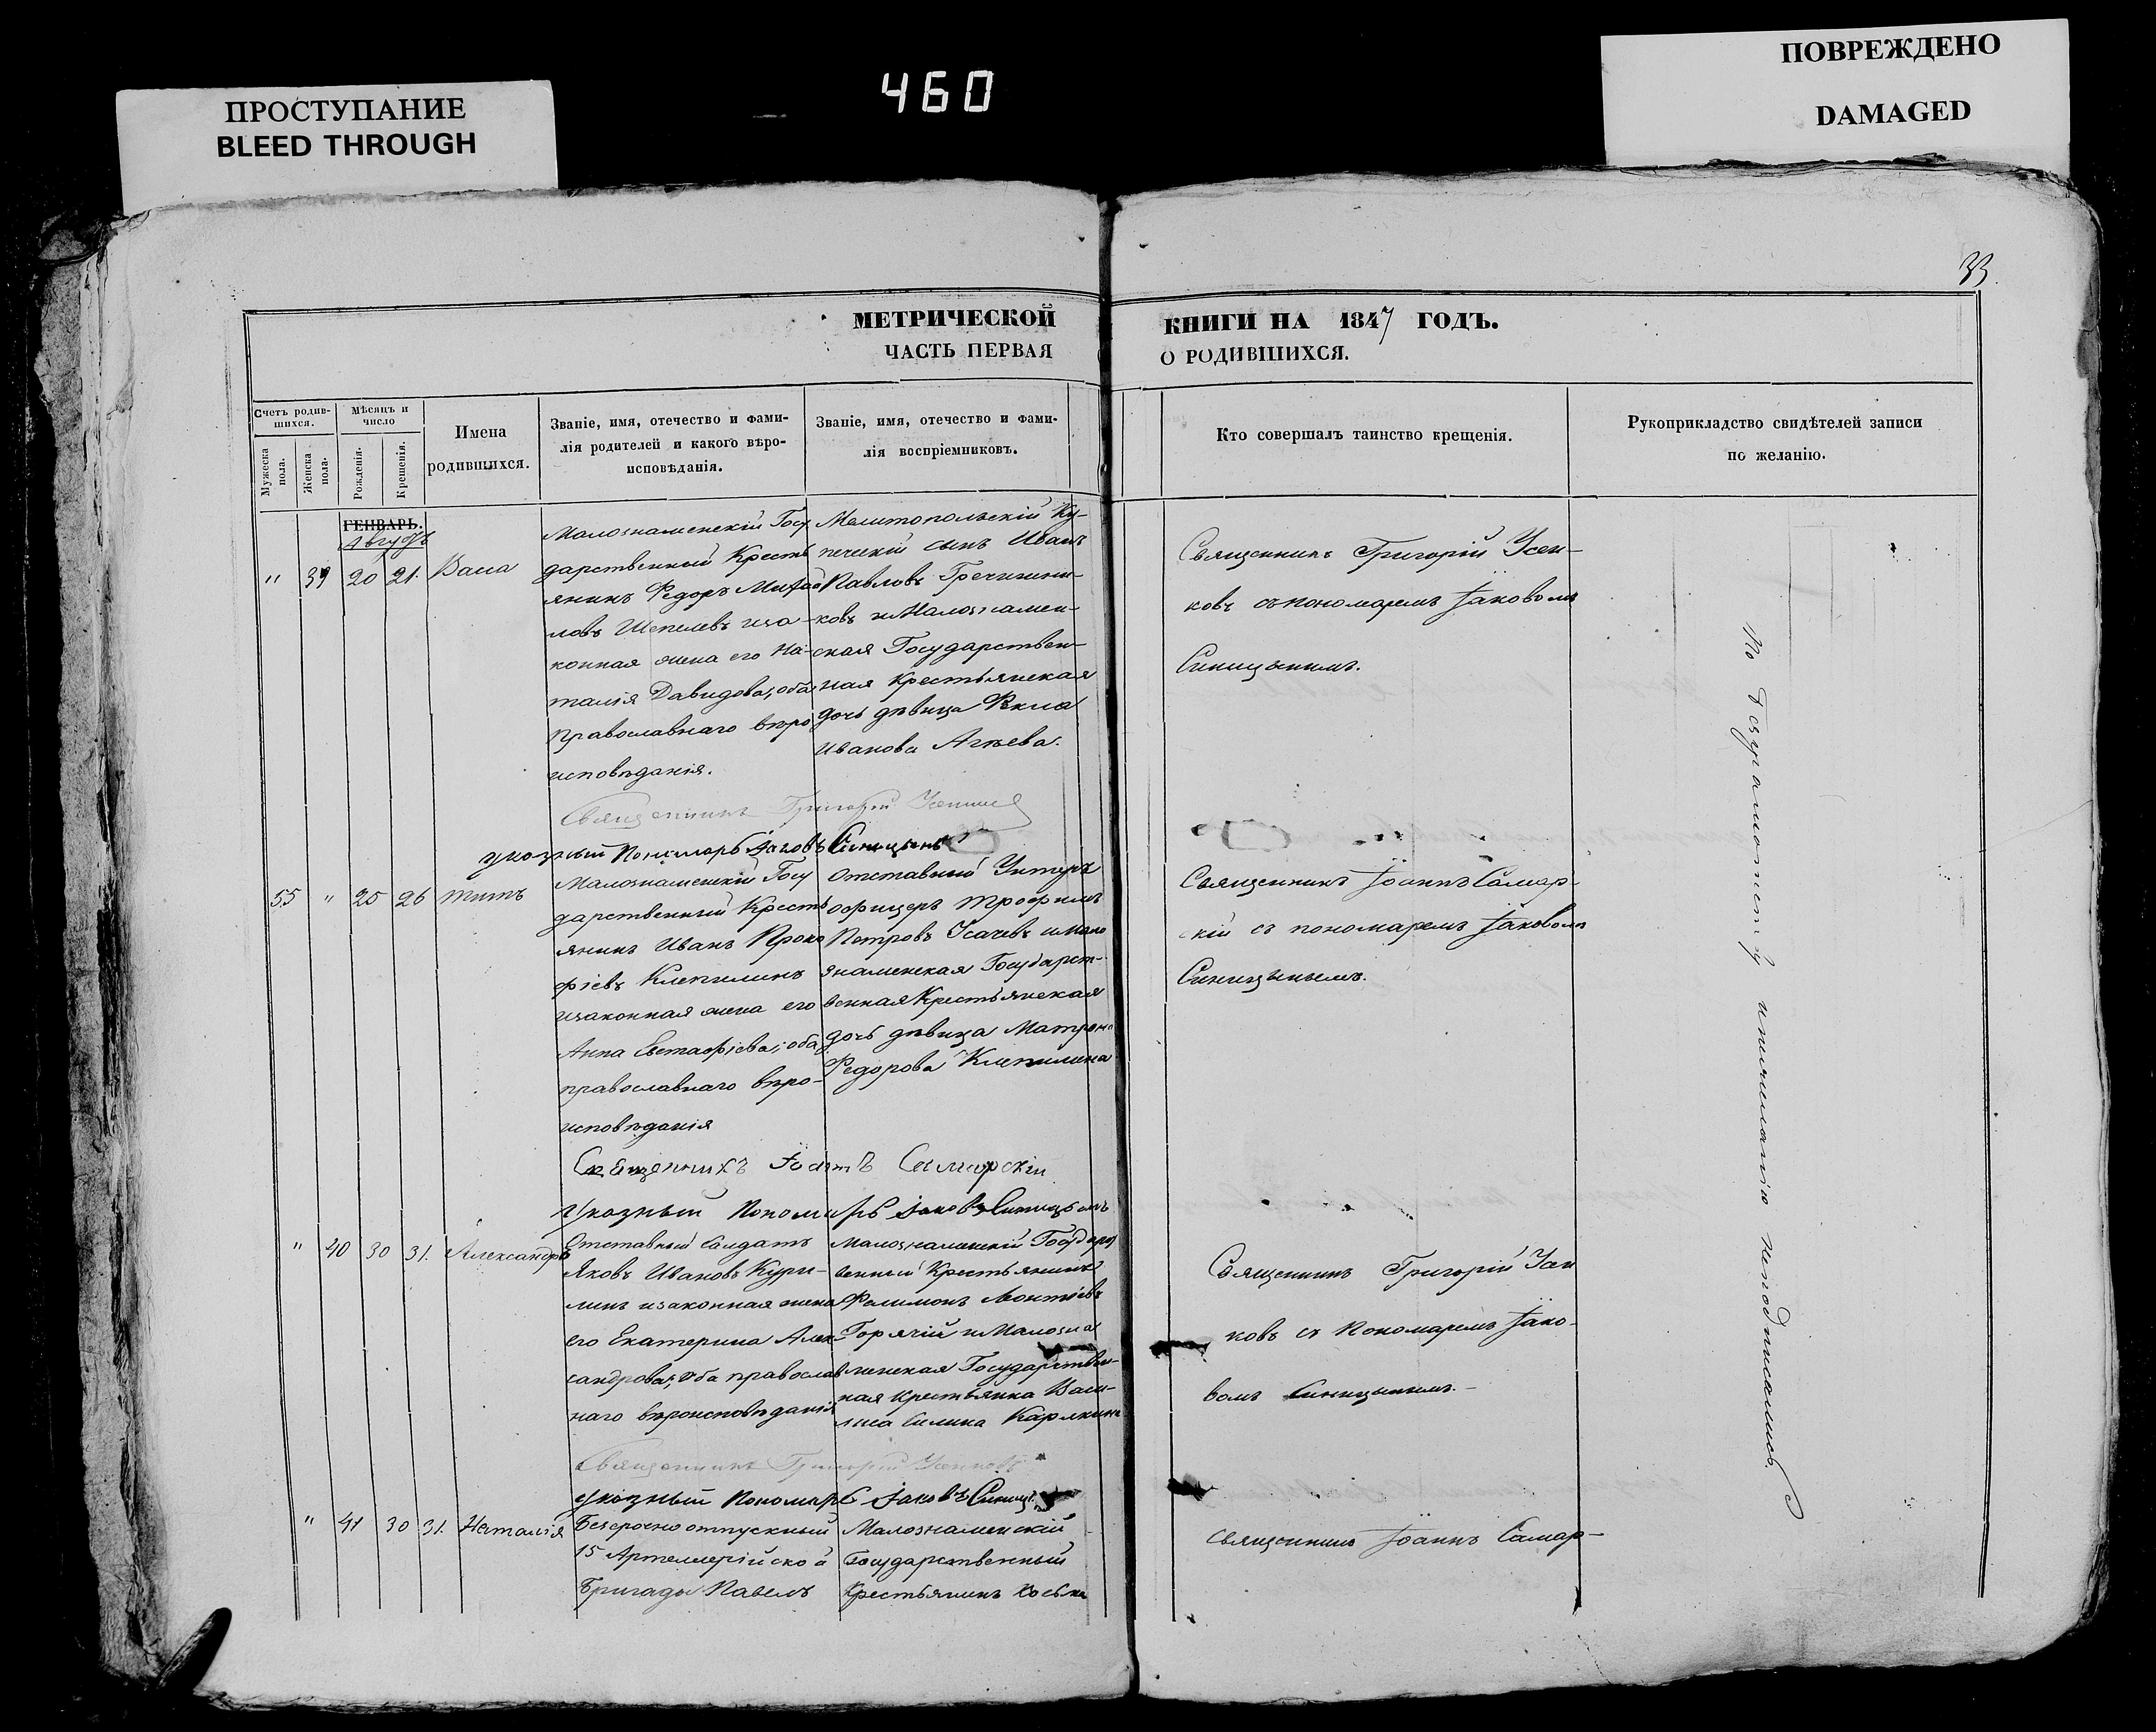 ПРОСТУПАНИЕ
BLEED THROUGH
460
ПОВРЕЖДЕНО
DAMAGED
33
МЕТРИЧЕСКОЙ
ЧАСТЬ ПЕРВАЯ
КНИГИ НА 1847 ГОДЪ.
О РОДИВШИХСЯ.
Счетъ родив-
шихся.
Мужеска
пола.
Женска
пола.
Мѣсяцъ и
число
Рожденія.
Крещенія.
Имена
родившихся.
Званіе, имя, отечество и фами-
лія родителей и какого вѣро-
исповѣданія.
Званіе, имя, отечество и фами-
лія воспріемниковъ.
Кто совершалъ таинство крещенія.
Рукоприкладство свидѣтелей записи
по желанію.
ГЕНВАРЬ.
Августъ
" 39 20 21. Васса
Малознаменскій Госу
дарственный Кресть
янинъ Федоръ Михай
ловъ Шепелевъ иза-
конная жена его На-
талія Давидова; оба
православнаго вѣро
исповѣданія.
Мелитопольскій Ку-
печескій сынъ Иванъ
Павловъ Гречишни-
ковъ и Малознамен-
ская Государствен-
ная крестьянская
дочь дѣвица
Иванова Агѣева.
Священникъ Григорій Усен-
ковъ съ пономаремъ Іаковомъ
Синицынымъ.
Священникъ Григорій Усенковъ
указный Пономарь Іаковъ Синицынъ
55 " 25 26 Титъ
Малознаменскій Госу
дарственный Кресть
янинъ Иванъ Проко
фіевъ Клепилинъ
изаконная жена его
Анна Евстафіева; оба
православнаго вѣро-
исповѣданія
Отставный Унтеръ
офицеръ Трофимъ
Петровъ Усачевъ и Мало
знаменская Государст-
венная Крестьянская
дочь дѣвица Матрона
Федорова Клепилина
Священникъ Іоаннъ Самар-
скій съ пономаремъ Іаковомъ
Синицынымъ.
Священникъ Іоаннъ Самарскій
указный Пономарь Іаковъ Синицынъ
" 40 30 31. Александра
Отставный Солдатъ
Яковъ Ивановъ Кури-
линъ изаконная жена
его Екатерина Алек-
сандрова; оба православ
наго вѣроисповѣданія
Малознаменскій Государст
венный Крестьянинъ
Филимонъ Леонтіевъ
Горячій и Малозна
менская Государствен-
ная крестьянка Васи-
лиса
Священникъ Григорій Усен
ковъ съ Пономаремъ Іако-
вомъ Синицынымъ.
Священникъ Григорій Усенковъ
указный Пономарь Іаковъ Синиц
" 41 30 31. Наталія
Безсрочно отпускный
15 Артиллерійской
Бригады Павелъ
Малознаменскій
Государственный
Крестьянинъ Косьма
Священникъ Іоаннъ Самар-